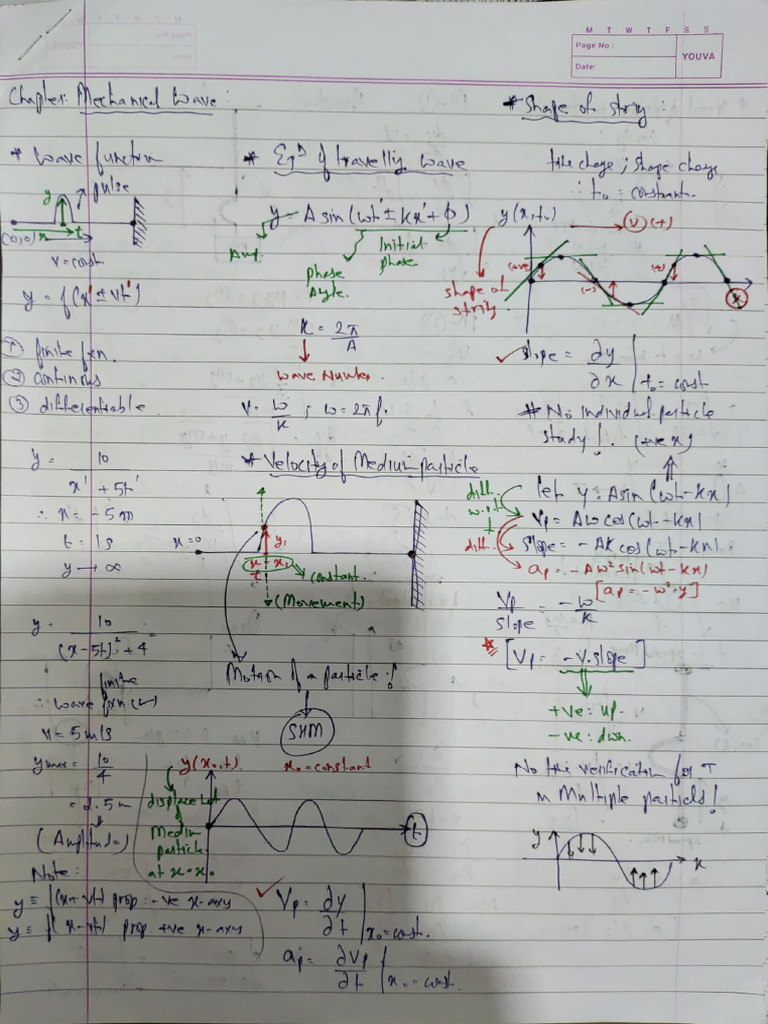 M T W T F S S
Page No.:
Date:
YOUVA
Chapter: Mechanical Wave:
* Wave function
y
pulse
(0,0) x t
v = const.
y = f(x' ± vt')
① finite fxn.
② continous
③ differentiable
y = 10 / x' + 5t'
∴ x = -5m
t = 1s
y → ∞
y = 10 / (x-5t)² + 4
finite
∴ wave fxn (✓)
v = 5 m/s
ymax = 10/4
= 2.5 m
(Amplitude)
Note:
y ≡ f(x+vt) prop: -ve x-axy
y ≡ f(x-vt) prop +ve x-axy
* Eqn of travellig wave
y = A sin (wt' ± kx' + φ)
Amp.
Phase Angle.
Initial phase
k = 2π / A
Wave Number.
v = w/k ; w = 2πf.
* Velocity of Medium particle
x=0
y1
x = x1
t
constant.
(Movement)
Motion of a particle!
SHM
y(x0,t)
x0 = constant
displacement
Medium particle at x=x0
t
Vp = ∂y/∂t | x0 = const.
ap = ∂Vp/∂t | x0 = const.
* Shape of striy:
time chage ; shape change
∴ t0 = constant.
y(x,t0)
(V) (+)
shape of striy
(+)ve
(-)
(+)
x
slope = ∂y/∂x | t0 = const
# No individual particle
study!. (+ve x)
let y = A sin (wt - kx)
diff. w.r.t t
Vp = Aw cos (wt - kx)
diff.
slope = -Ak cos (wt - kx)
ap = -Aw² sin (wt - kx)
[ap = -w²·y]
Vp/slope = -w/k
* [Vp = -V.slope]
+ve: up.
-ve: dwn.
No time verification for
in Multiple particles!
y
x